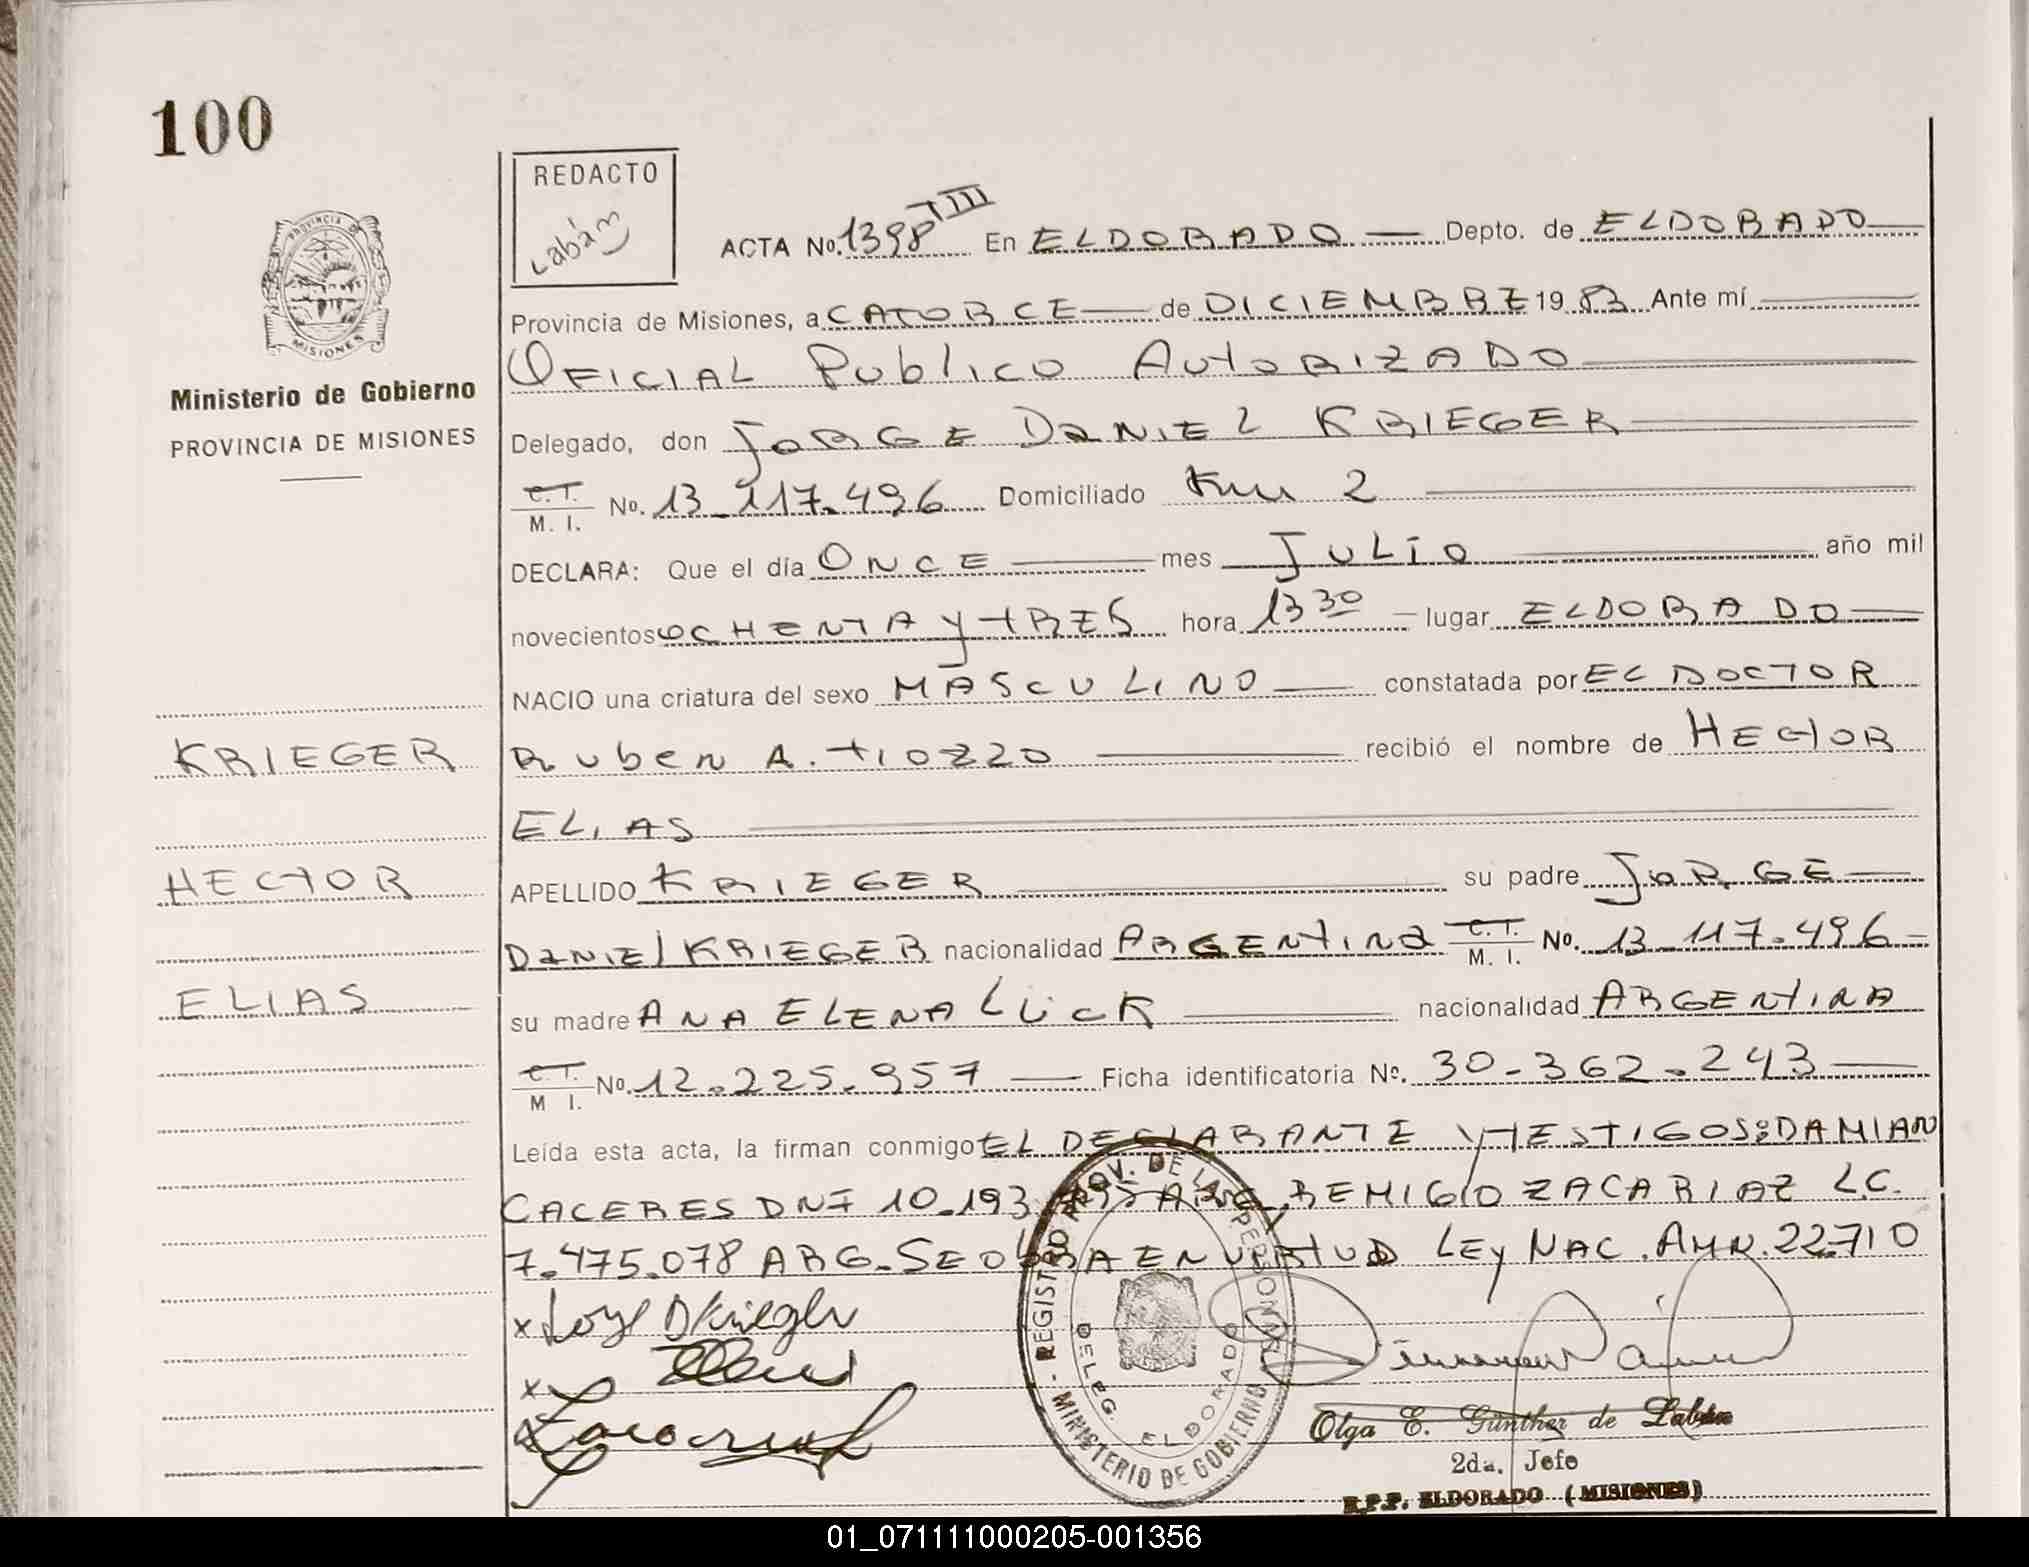 100
REDACTO
Labán
ACTA No. 1398 TIII En ELDORADO Depto. de ELDORADO
Provincia de Misiones, a CATORCE de DICIEMBRE 1983 Ante mí
OFICIAL PUBLICO AUTORIZADO
Delegado, don JORGE DANIEL KRIEGER
C.T. M. I. No. 13.117.496 Domiciliado Km 2
DECLARA: Que el día ONCE mes JULIO año mil
novecientos OCHENTA Y TRES hora 13 30 lugar ELDORADO
NACIO una criatura del sexo MASCULINO constatada por EL DOCTOR
RUBEN A. TIOZZO recibió el nombre de HECTOR
ELIAS
APELLIDO KRIEGER su padre JORGE
DANIEL KRIEGER nacionalidad ARGENTINA C.T. M. I. No. 13.117.496
su madre ANA ELENA LÜCK nacionalidad ARGENTINA
C.T. M I. No. 12.225.957 Ficha identificatoria No. 30.362.243
Leída esta acta, la firman conmigo EL DECLARANTE Y TESTIGOS: DAMIAN
CACERES DNI 10.193 ARG. REMIGIO ZACARIAZ L.C.
7.475.078 ARG. SE LABRA EN VIRTUD LEY NAC. AMN. 22.710
x Jorge D Krieger
x
PROVINCIA DE MISIONES
Ministerio de Gobierno
PROVINCIA DE MISIONES
KRIEGER
HECTOR
ELIAS
REGISTRO PROV. DE LAS PERSONAS - MINISTERIO DE GOBIERNO
DELEG. ELDORADO
Olga E. Günther de Labán
2da. Jefe
R.P.P. ELDORADO (MISIONES)
01_071111000205-001356